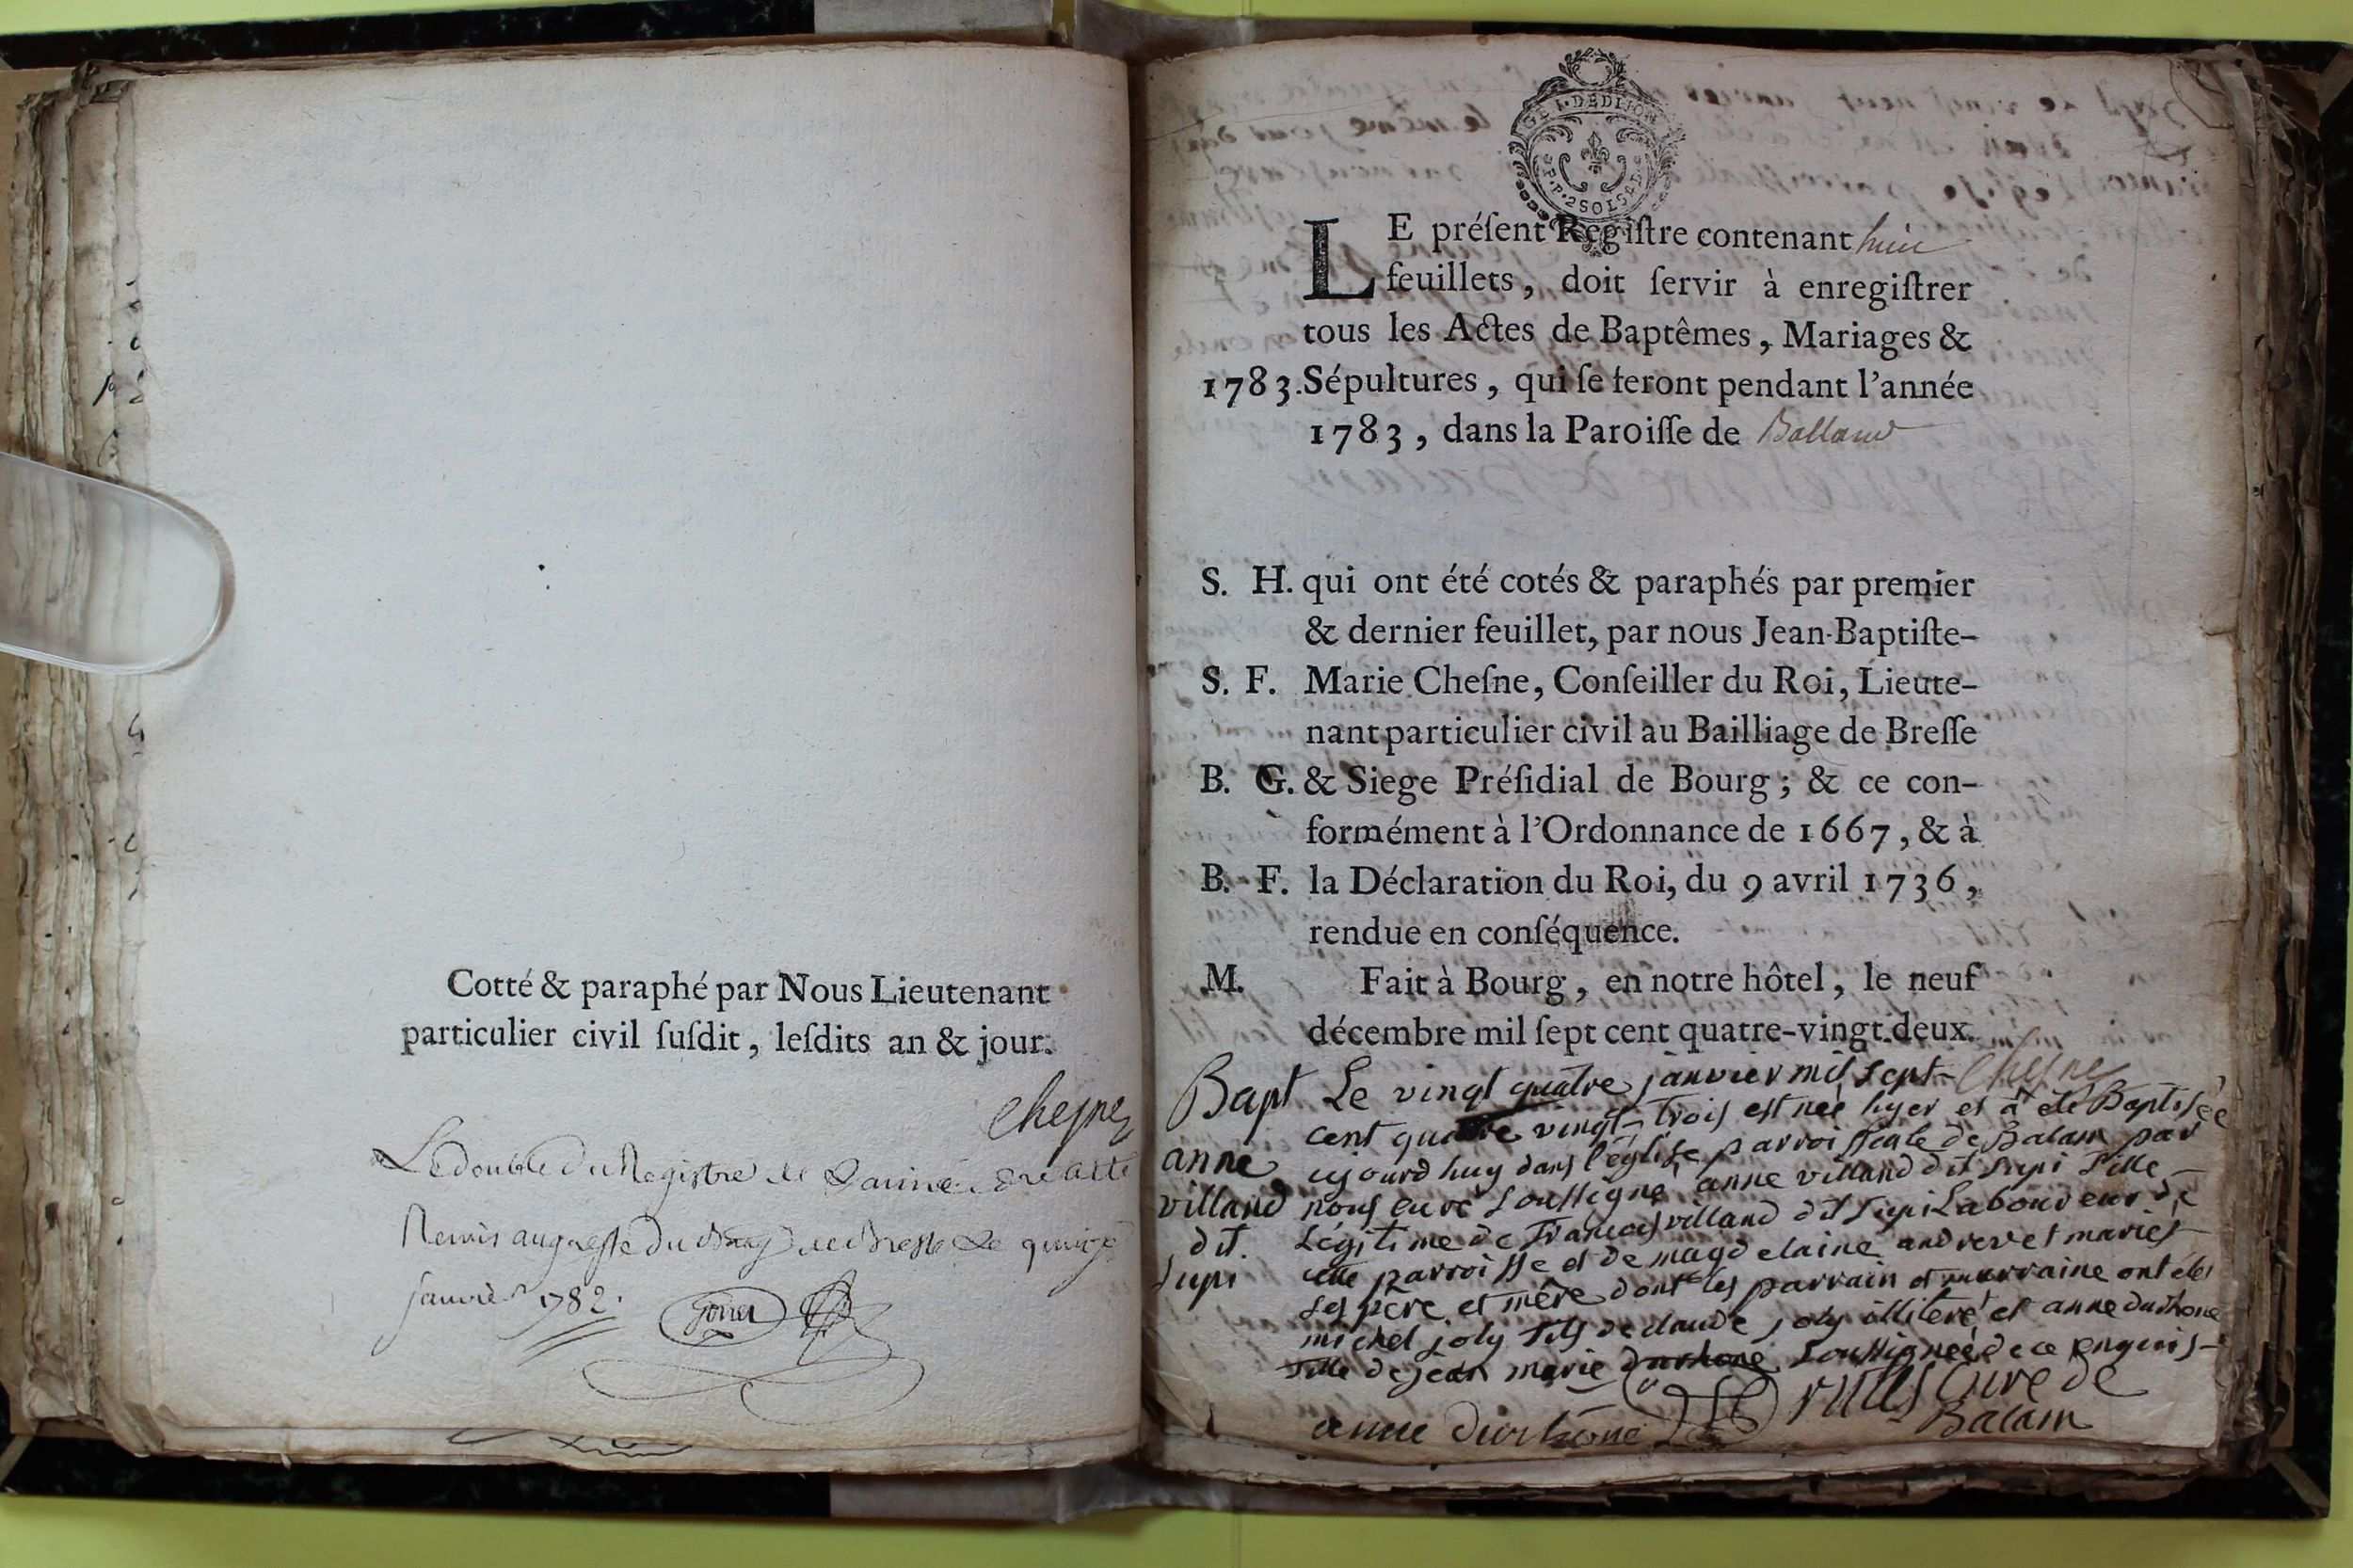 Cotté & paraphé par Nous Lieutenant
particulier civil ſuſdit, leſdits an & jour.
Chesne
Le double du Registre de L'année dre a été
Remis au greffe du de Bresse le quinze
janvier 1782.
G. I. DE DIJON
P. P. 2 SOLS
LE préſent Regiſtre contenant huit
feuillets, doit ſervir à enregiſtrer
tous les Actes de Baptêmes, Mariages &
1783. Sépultures, qui ſe feront pendant l'année
1783, dans la Paroiſſe de Balland
S. H. qui ont été cotés & paraphés par premier
& dernier feuillet, par nous Jean-Baptiſte-
S. F. Marie Cheſne, Conſeiller du Roi, Lieute-
nant particulier civil au Bailliage de Breſſe
B. G. & Siege Préſidial de Bourg; & ce con-
formément à l'Ordonnance de 1667, & à
B. F. la Déclaration du Roi, du 9 avril 1736,
rendue en conſéquence.
M. Fait à Bourg, en notre hôtel, le neuf
décembre mil ſept cent quatre-vingt deux.
Chesne
Bapt
anne
villand
dit
Supi
Le vingt quatre janvier mil sept
cent quatre vingt trois est née hyer et a été Baptisée
aujourd huy dans l'église parroissiale de Balam par
nous curé soussigné anne villand dit supi fille
Légitime de françois villand dit supi Laboureur de
cette parroisse et de magdelaine andrevet mariés
ses père et mère dont les parrain et marraine ont étés
michel joly fils de claude joly illiteré et anne durhone
fille de jean marie durhone soussignée de ce enquis
anne durhone curé de
Balam